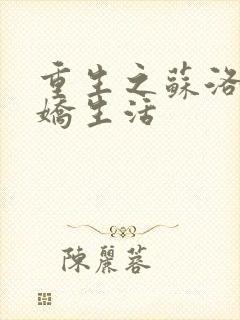 重生之蘇洛
嬌生活
陳麗蓉